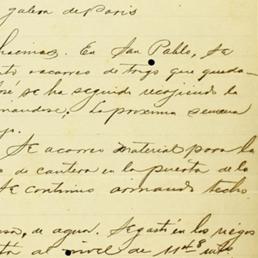 galera de Paris
hacinas. En San Pablo, se
to acarreo de trigo que queda-
se ha seguido recojiendo la
La proxima semana
Se acarreo material para la
de cantera en la puerta de la
Se continuo armando techo
de agua. Se gastó en los riegos
al nivel de